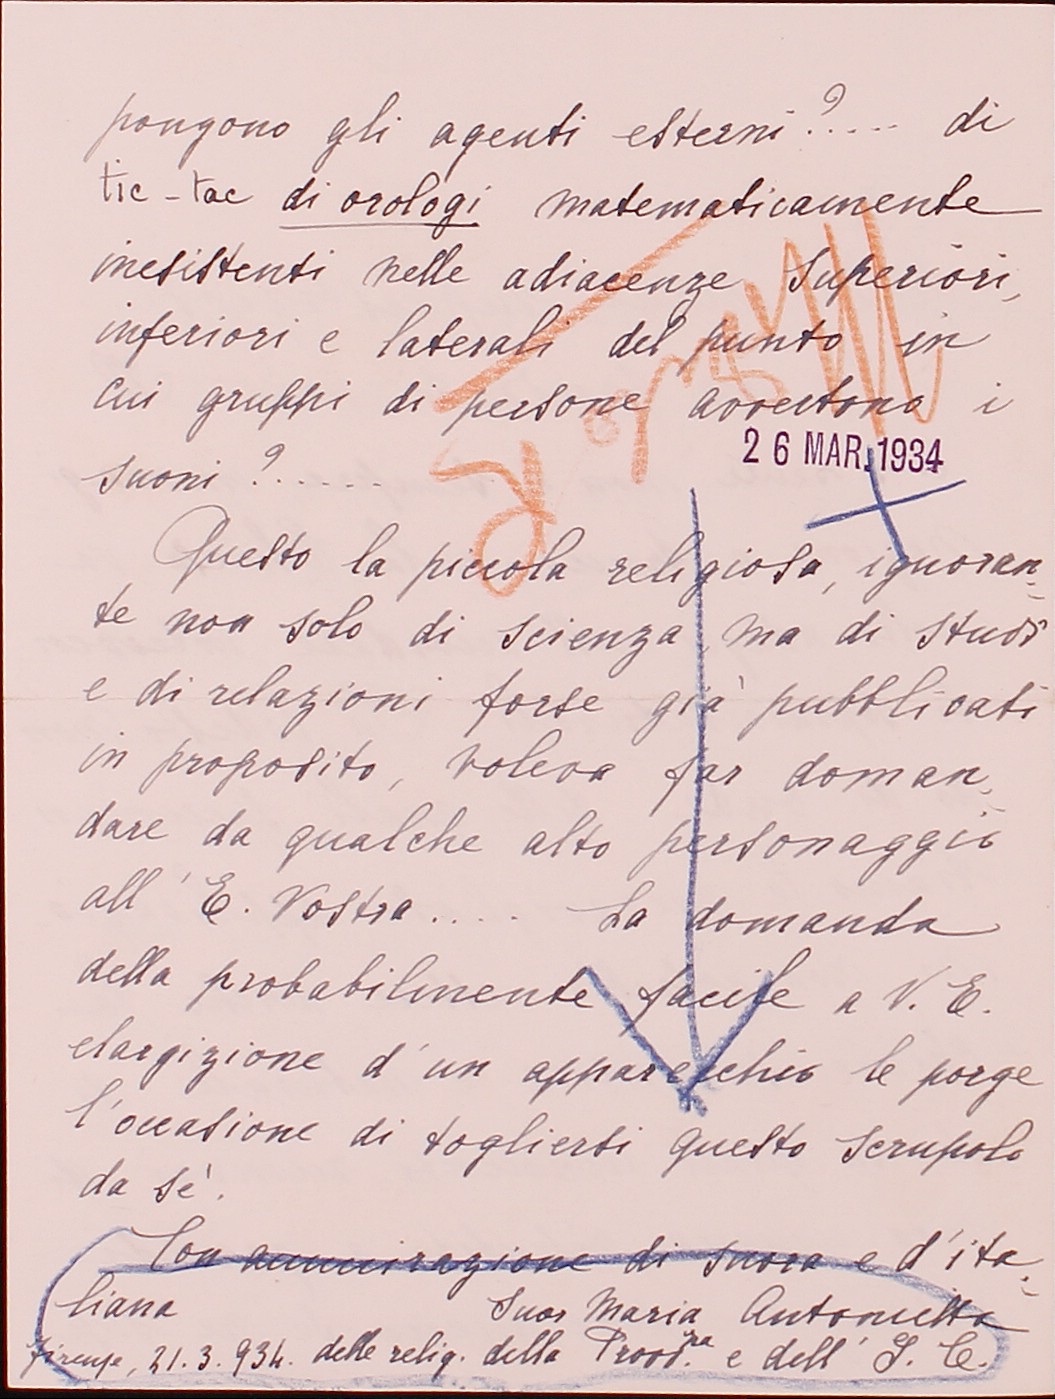 pongono gli agenti esterni?..... di
tic-tac di orologi matematicamente
inesistenti nelle adiacenze superiori,
inferiori e laterali del punto in
cui gruppi di persone avvertono i
suoni?......
26 MAR. 1934
Questo la piccola religiosa, ignoran-
te non solo di scienza, ma di studi
e di relazioni forse già pubblicati
in proposito, voleva far doman-
dare da qualche alto personaggio
all'E. Vostra.... La domanda
della probabilmente facile a V. E.
elargizione d'un apparecchio le porge
l'occasione di togliersi questo scrupolo
da sè.
Con ammirazione di suora e d'ita-
liana Suor Maria Antonietta
Firenze, 21.3.934. delle relig. della Provv.za e dell' I. C.